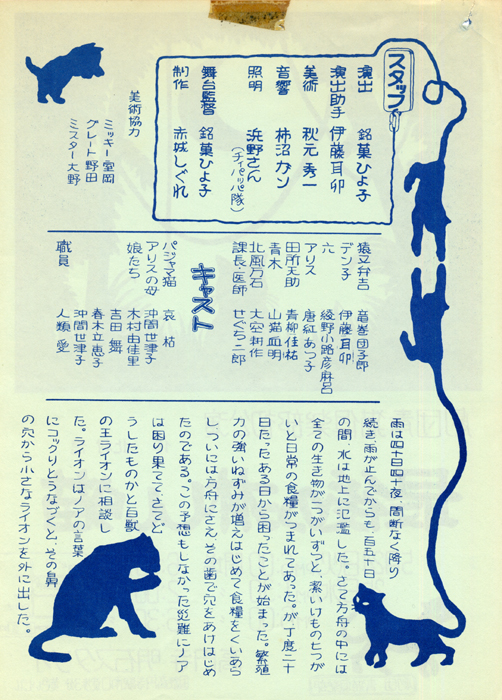 スタッフ
演出 銘菓ひよ子
演出助手 伊藤耳卯
美術 秋元秀一
音響 柿沼ガン
照明 浜野さん
(チィパッパ隊)
舞台監督 銘菓ひよ子
制作 赤城しぐれ
美術協力
ミッキー室岡
グレート野田
ミスター大野
キャスト
猿又弁吉 竜巻団子郎
デン子 伊藤耳卯
六 綾野小路彦麻呂
アリス 唐紅あつ子
田所天助 青柳佳祐
青木 山猫血明
北風万石 大空耕作
課長・医師 せぐち二郎
パジャマ猫 哀枯
アリスの母 沖間世津子
娘たち 木村由佳里
吉田舞
春木立恵子
沖間世津子
職員 人類愛
雨は四十日四十夜、間断なく降り
続き雨が止んでからも、百五十日
の間、水は地上に氾濫した。さて方舟の中には
全ての生き物が二つがいずつと 潔いけもの七つが
いと日常の食糧がつまれてあった。が丁度二十
日たったある日から困ったことが始まった。繁殖
力の強いねずみが増えはじめて食糧をくいあら
し、ついには方舟にさえ、その歯で穴をあけはじめ
たのである。この予想もしなかった災難にノア
は困り果ててさてど
うしたものかと百獣
の王ライオンに相談し
た。ライオンはノアの言葉
にコックリとうなづくと、その鼻
の穴から小さなライオンを外に出した。